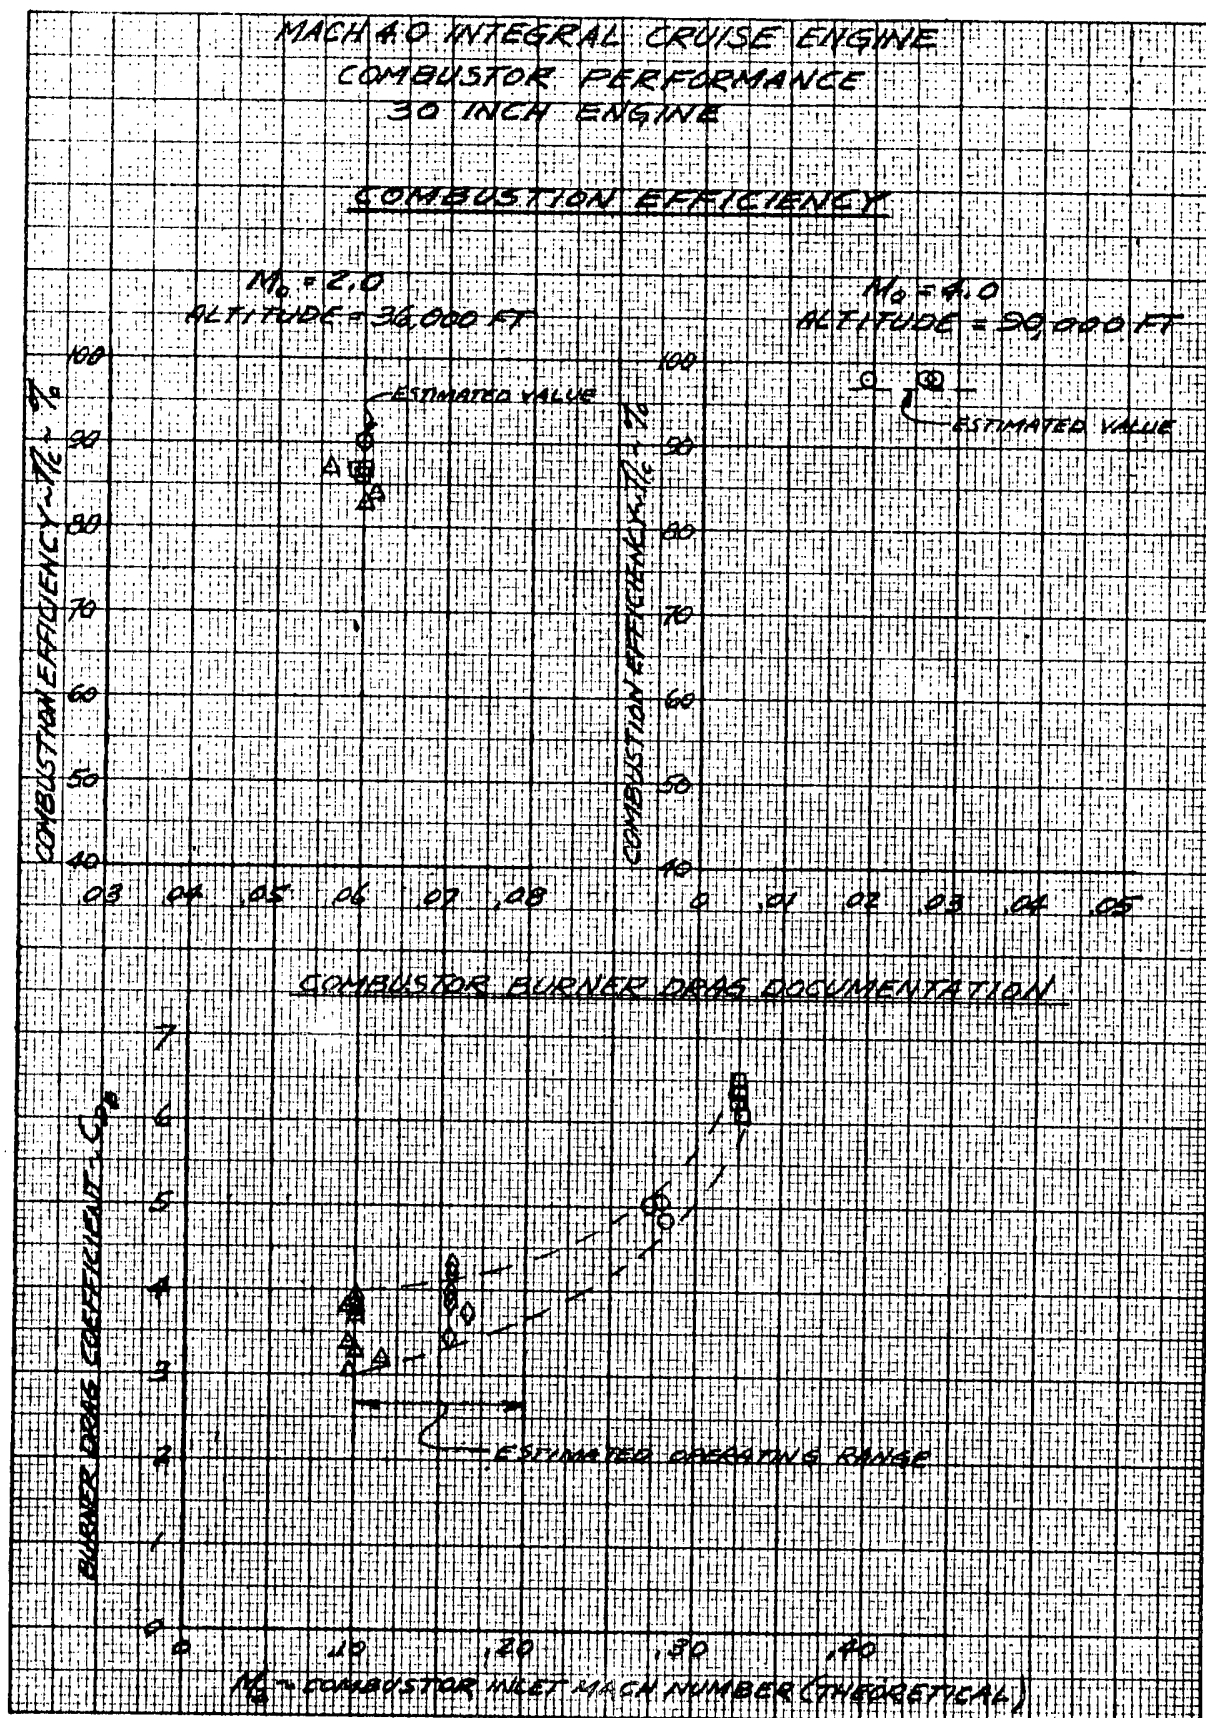 MACH 4.0 INTEGRAL CRUISE ENGINE
COMBUSTOR PERFORMANCE
30 INCH ENGINE
COMBUSTION EFFICIENCY
M₀ = 2.0
ALTITUDE = 36,000 FT
M₀ = 4.0
ALTITUDE = 90,000 FT
COMBUSTION EFFICIENCY ~ ηc ~ %
100
90
80
70
60
50
40
ESTIMATED VALUE
.03 .04 .05 .06 .07 .08
COMBUSTION EFFICIENCY ~ ηc ~ %
100
90
80
70
60
50
40
ESTIMATED VALUE
0 .01 .02 .03 .04 .05
COMBUSTOR BURNER DRAG DOCUMENTATION
BURNER DRAG COEFFICIENT ~ C
7
6
5
4
3
2
1
0
ESTIMATED OPERATING RANGE
0 .10 .20 .30 .40
~ COMBUSTOR INLET MACH NUMBER (THEORETICAL)